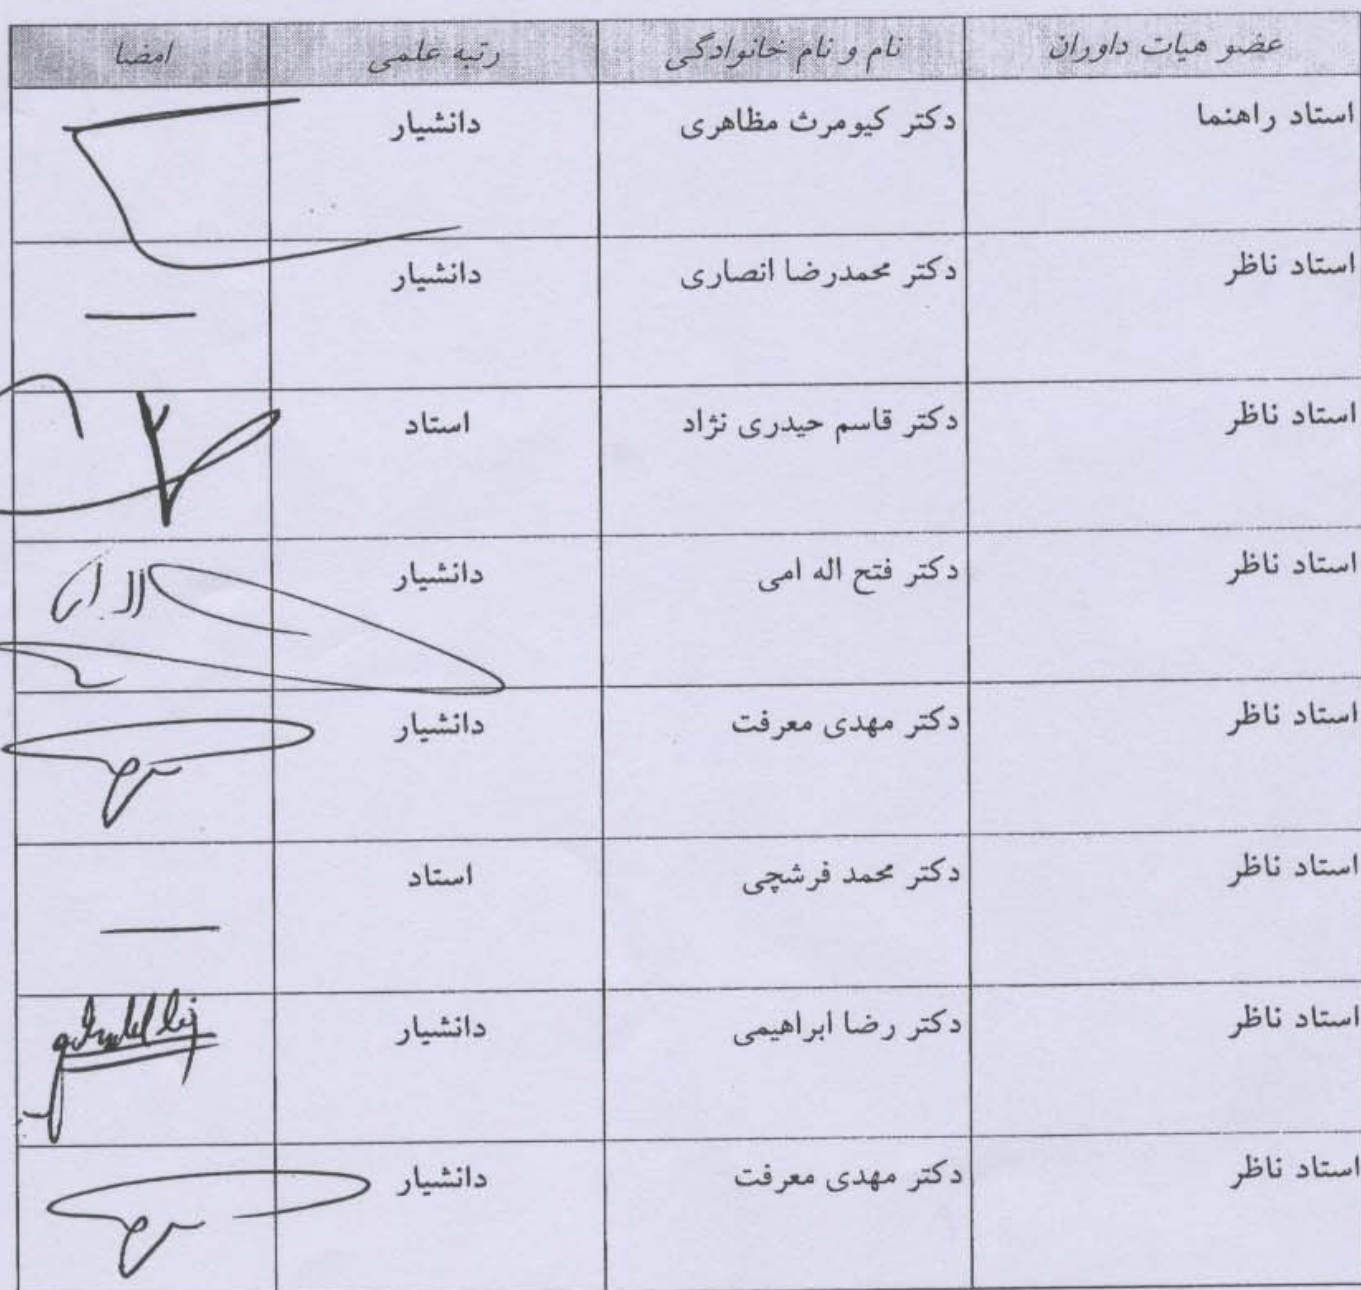 عضو هیات داوران نام و نام خانوادگی رتبه علمی امضا
استاد راهنما دکتر کیومرث مظاهری دانشیار
استاد ناظر دکتر محمدرضا انصاری دانشیار
استاد ناظر دکتر قاسم حیدری نژاد استاد
استاد ناظر دکتر فتح اله امی دانشیار
استاد ناظر دکتر مهدی معرفت دانشیار
استاد ناظر دکتر محمد فرشچی استاد
استاد ناظر دکتر رضا ابراهیمی دانشیار
استاد ناظر دکتر مهدی معرفت دانشیار